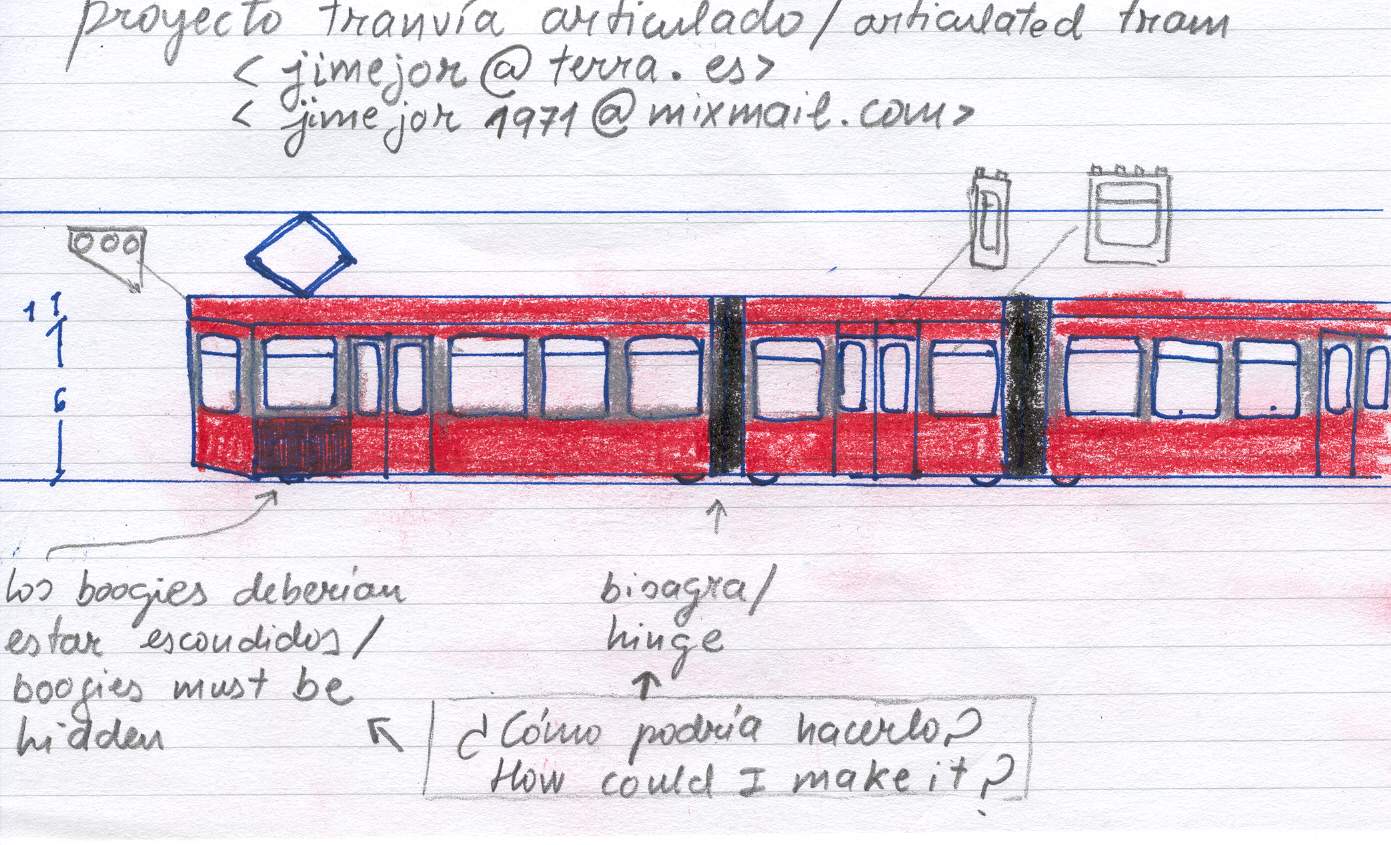 proyecto tranvía articulado/articulated tram
<jimejor@terra.es>
<jimejor1971@mixmail.com>
1
6
los boogies deberían
estar escondidos/
boogies must be
hidden
bisagra/
hinge
¿Cómo podría hacerlo?
How could I make it?